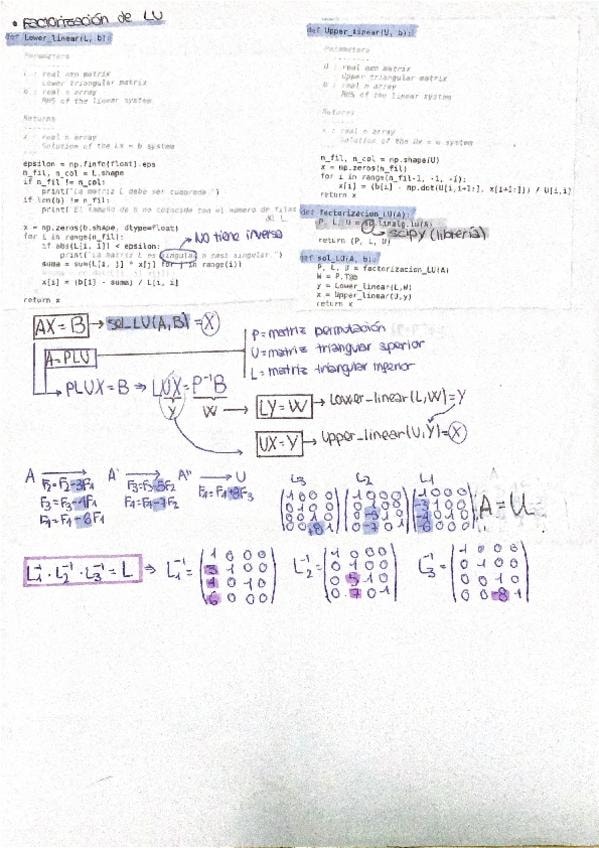 • Factorización de LU
def Lower_linear(L, b):
Parameters
L : real nxn matrix
Lower triangular matrix
b : real n array
RHS of the linear system
Returns
x : real n array
Solution of the Lx = b system
epsilon = np.finfo(float).eps
n_fil, n_col = L.shape
if n_fil != n_col:
print("La matriz L debe ser cuadrada")
if len(b) != n_fil:
print("El tamaño de b no coincide con el número de filas de L")
x = np.zeros(b.shape, dtype=float)
for i in range(n_fil):
if abs(L[i, i]) < epsilon:
print("La matriz L es singular o casi singular.")
NO tiene inverso
suma = sum(L[i, j] * x[j] for j in range(i))
x[i] = (b[i] - suma) / L[i, i]
return x
def Upper_linear(U, b):
Parameters
U : real nxn matrix
Upper triangular matrix
b : real n array
RHS of the linear system
Returns
x : real n array
n_fil, n_col = np.shape(U)
x = np.zeros(n_fil)
for i in range(n_fil-1, -1, -1):
x[i] = (b[i] - np.dot(U[i,i+1:], x[i+1:])) / U[i,i]
return x
def factorizacion_LU(A):
P, L, U = linalg.lu(A)
scipy (librería)
return (P, L, U)
def sol_LU(A, b):
P, L, U = factorizacion_LU(A)
W = P.T@b
y = Lower_linear(L,W)
x = Upper_linear(U,y)
return x
AX = B → sol_LU(A,B) = X
A = PLU
P = matriz permutación
U = matriz triangular superior
L = matriz triangular inferior
PLUX = B ⇒ LUX = P⁻¹B
Y W → LY = W → Lower_linear(L,W) = Y
UX = Y → Upper_linear(U,Y) = X
A → A' → A'' → U
F2=F2-3F1 F3=F3-5F2 F4=F4+8F3
F3=F3-4F1 F4=F4-7F2
F4=F4-6F1
L3 L2 L1
A = U
L1⁻¹ · L2⁻¹ · L3⁻¹ = L ⇒ L1⁻¹ = L2⁻¹ = L3⁻¹ =
1 0 0 0 1 0 0 0 1 0 0 0
3 1 0 0 0 1 0 0 0 1 0 0
4 0 1 0 0 5 1 0 0 0 1 0
6 0 0 0 0 7 0 1 0 0 -8 1